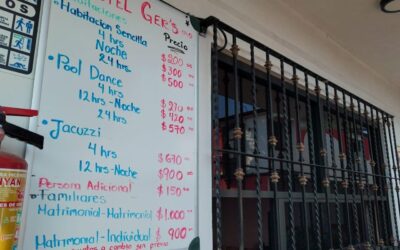 HOTEL GER'S
Habitaciones
Precio
• Habitacion Sencilla
4 hrs $200
Noche $300
24 hrs $500
• Pool Dance
4 hrs $270
12 hrs - Noche $420
24 hrs $570
• Jacuzzi
4 hrs $670
12 hrs - Noche $900
Persona Adicional $150
Familiares
Matrimonial - Matrimonial $1.000
Matrimonial - Individual $900
a cambio sin previo